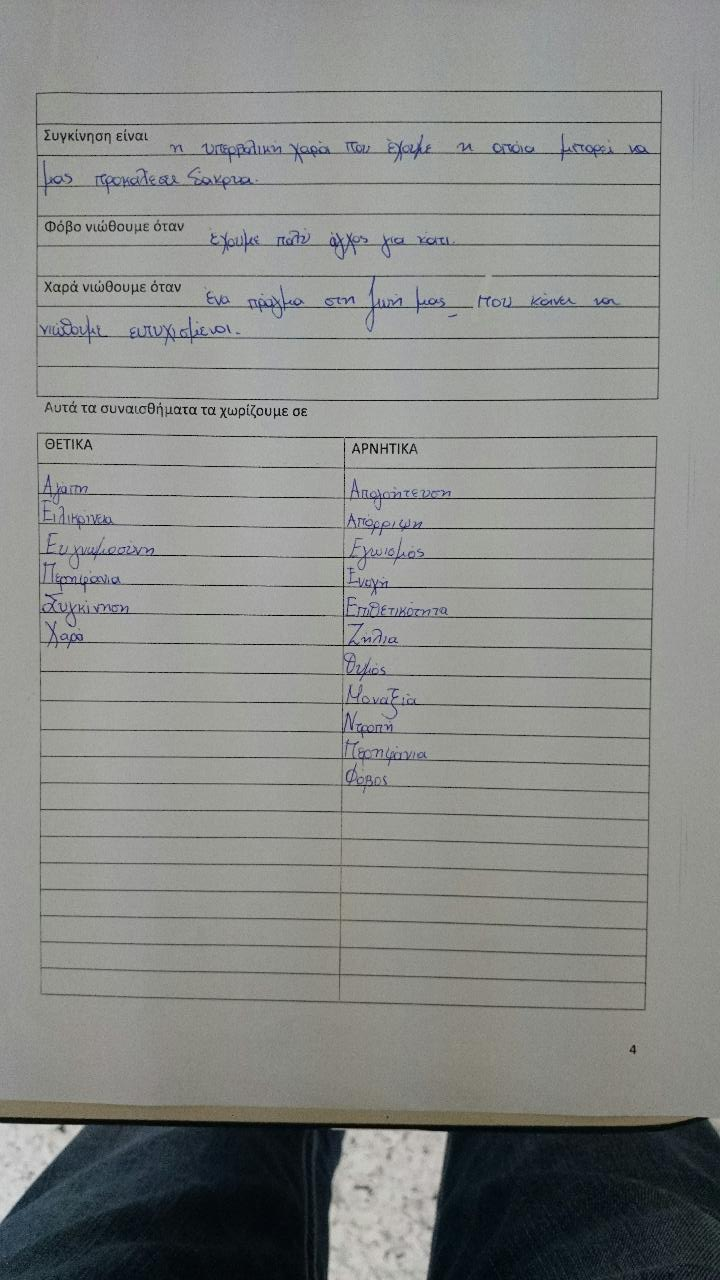 Συγκίνηση είναι η υπερβολικη χαρά που έχουμε η οποία μπορεί να
μας προκαλεσει δακρυα.
Φόβο νιώθουμε όταν έχουμε πολύ άγχος για κατι.
Χαρά νιώθουμε όταν ένα πράγμα στη ζωή μας που κάνει να
νιώθουμε ευτυχισμένοι.
Αυτά τα συναισθήματα τα χωρίζουμε σε
ΘΕΤΙΚΑ ΑΡΝΗΤΙΚΑ
Αγάπη Απογοήτευση
Ειλικρίνεια Απόρριψη
Ευγνωμοσύνη Εγωισμός
Περηφάνια Ενοχή
Συγκίνηση Επιθετικότητα
Χαρά Ζήλια
Θυμός
Μοναξιά
Ντροπή
Περηφάνια
Φόβος
4